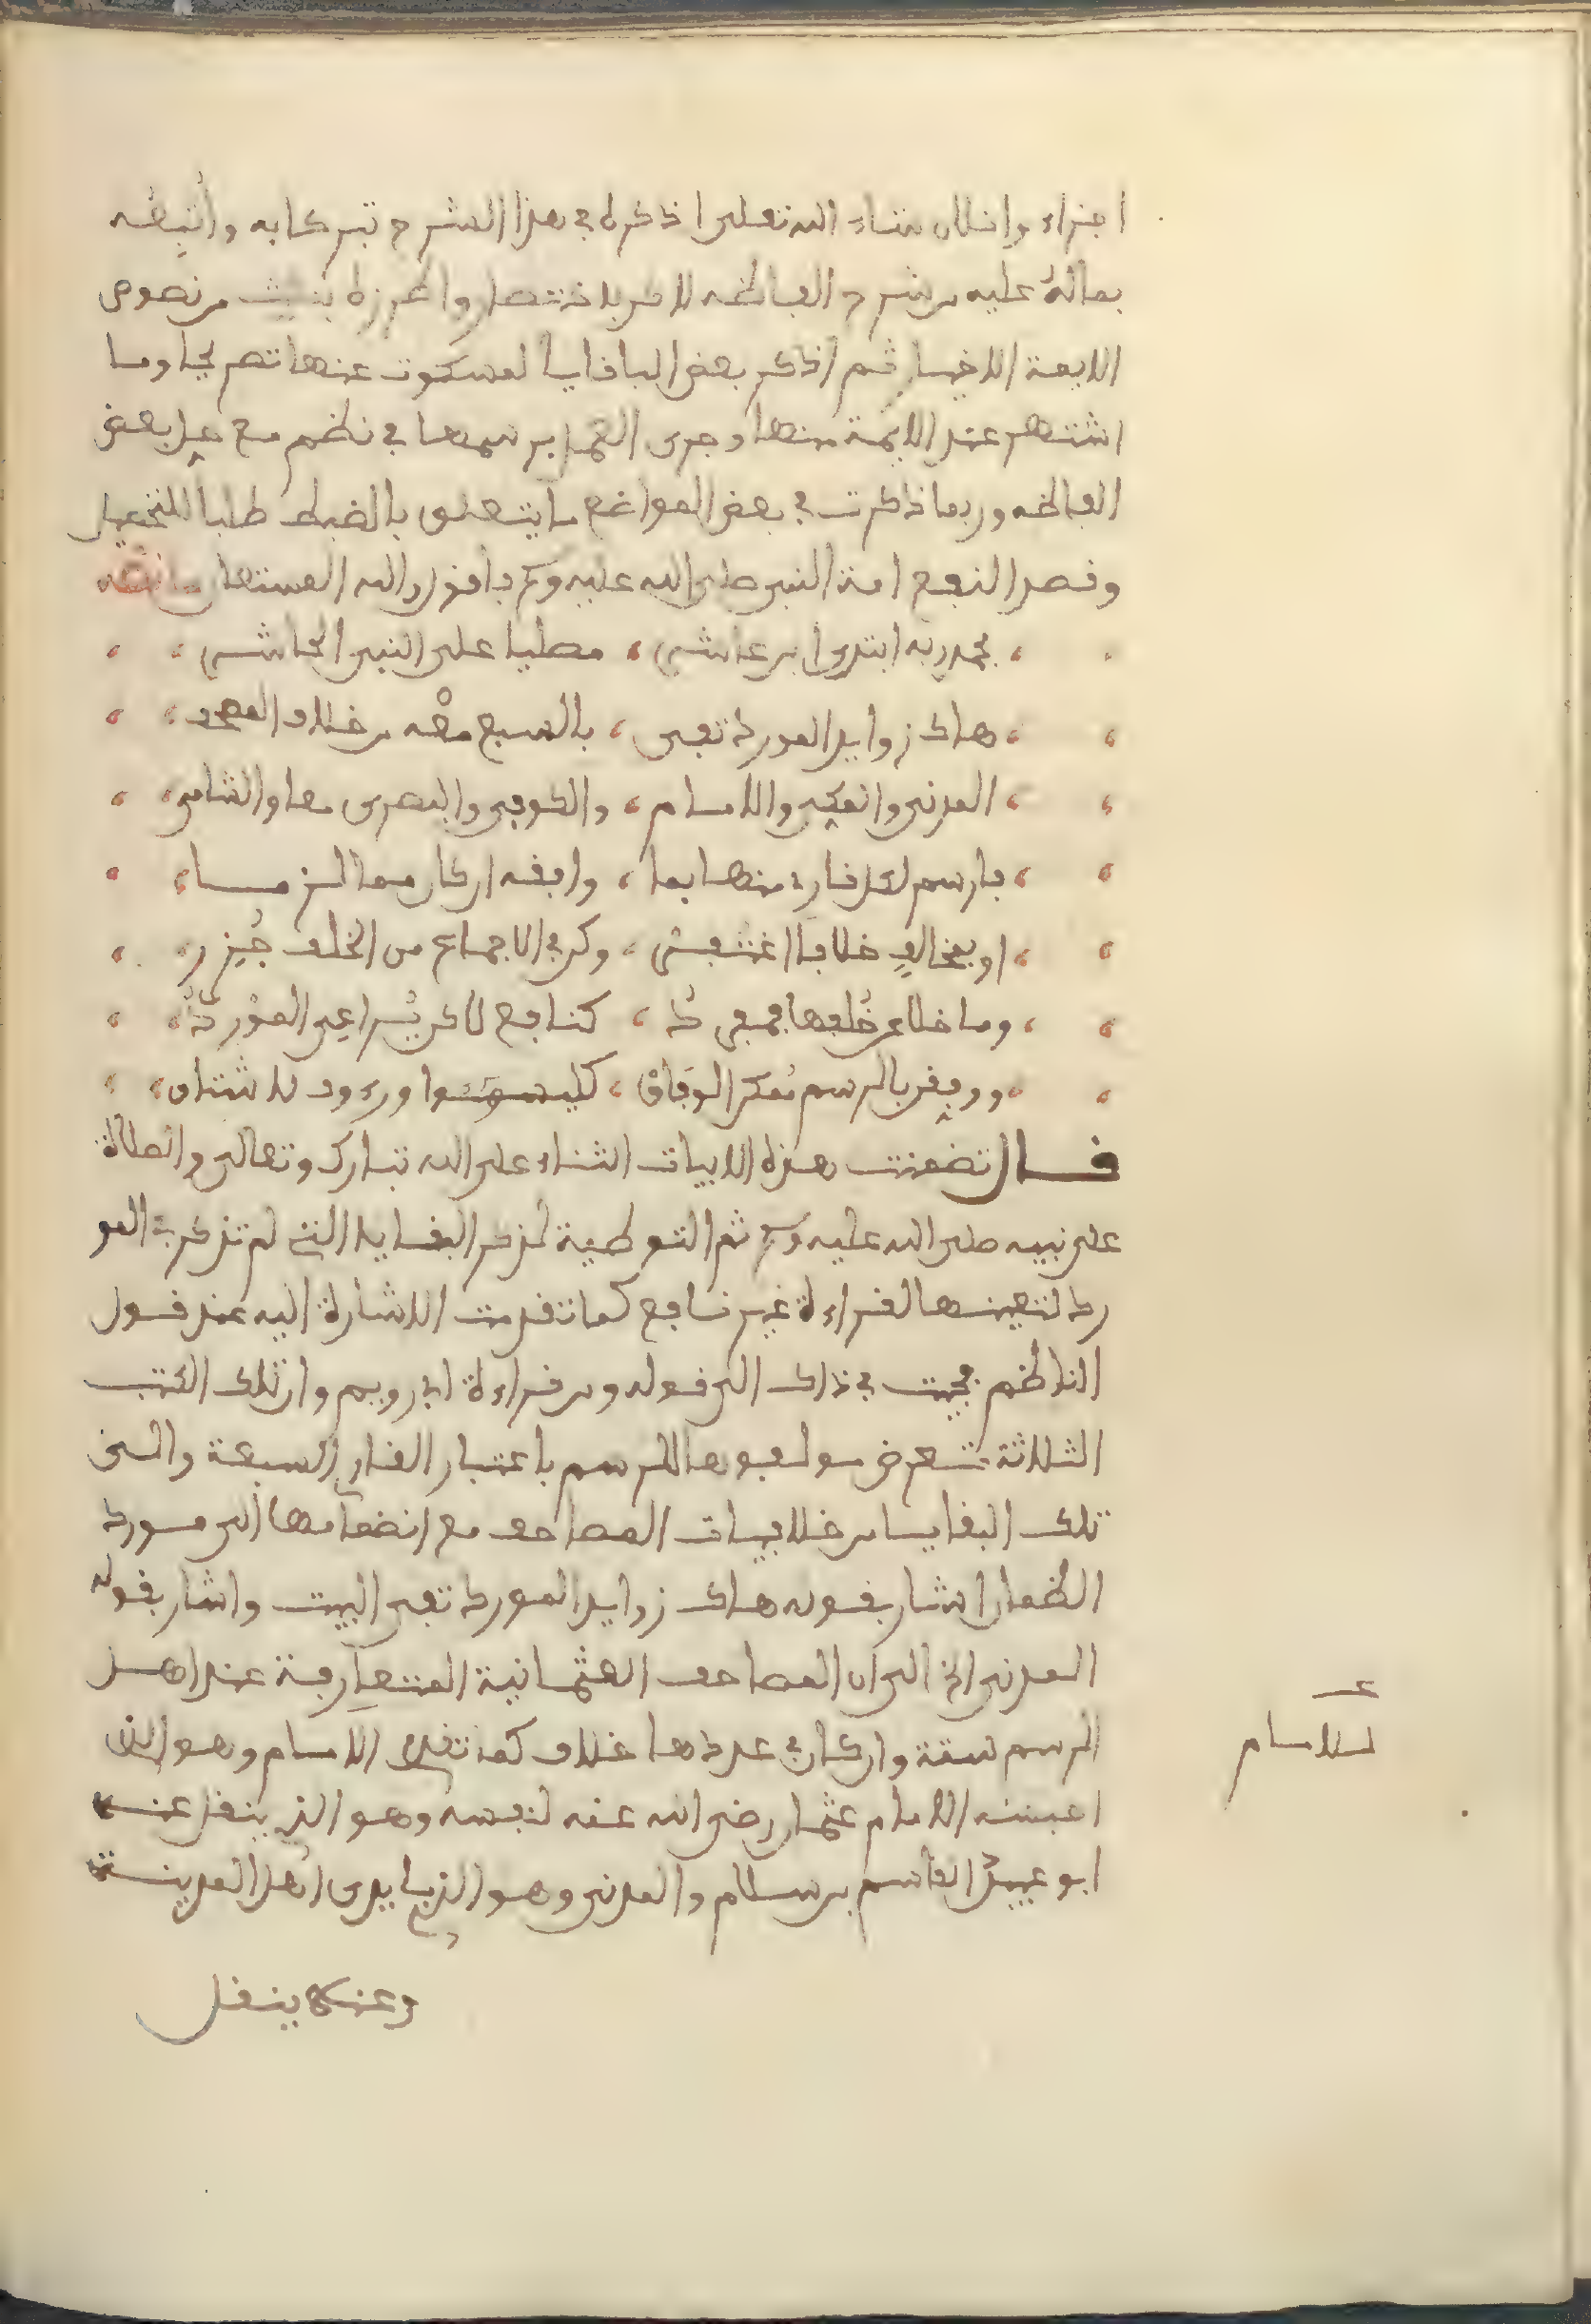 اجزاء وانا ان شاء الله تعلى اذكره في هذا الشرح تبركا به واتبعه
بماله عليه من شرح الفاظه لاكن باختصار واعززه بنصوص
الايمة الاخيار ثم اذكر بعض البقايا المسكوت عنها تصريحا وما
اشتهر عند الايمة منها وجرى العمل برسمها في نظم مع حل بعض
الفاظه وربما ذكرت في بعض المواضع ما يتعلق بالضبط طلبا للتحصيل
وقصد النفع امة النبي صلى الله عليه وسلم فاقول والله المستعان
بحمد ربه ابتدا ابن عاشر مصليا على النبي الحاشر
هاك زوايد لمورد تفي بالسبع معه من خلاف المصحف
المدني والمكي والامام والكوفي والبصري معا والشامي
فارسم لكل قارئ منها بما وافقه ان كان مما لزما
او بمخالف خلافا اغتفر وكن في الاجماع من الخلف حذر
وما خلا عن خلفها فمفرد كنافع لاكن يراعى المورد
وروي بالرسم الوفاق كليسوءوا ورءوف لا شقاق
قال تضمنت هذه الابيات الثناء على الله تبارك وتعالى والصلاة
على نبيه صلى الله عليه وسلم ثم التوطية لذكر البقايا التي لم تذكر في المو
رد لتعينها لقراءة غير نافع كما تقدمت الاشارة اليه عند قول
الناظم فجيت في ذاك الى قوله ومن قراءة ابي رويم وان تلك الكتب
الثلاثة تعرض مولفوها للرسم باعتبار القراء السبعة والى
تلك البقايا من خلافيات المصاحف مع انضمامها الى مورد
الظمان اشار بقوله هاك زوايد المورد تفي البيت واشار بقوله
المدني الخ الى ان المصاحف العثمانية المتعارفة عند اهل
الرسم ستة وان كان في عددها خلاف كما تقدم الامام وهو الذي
احبسه الامام عثمان رضي الله عنه لنفسه وهو الذي ينقل عنه
ابو عبيد القاسم بن سلام والمدني وهو الذي بايدي اهل المدينة
وعنه ينقل
الامام